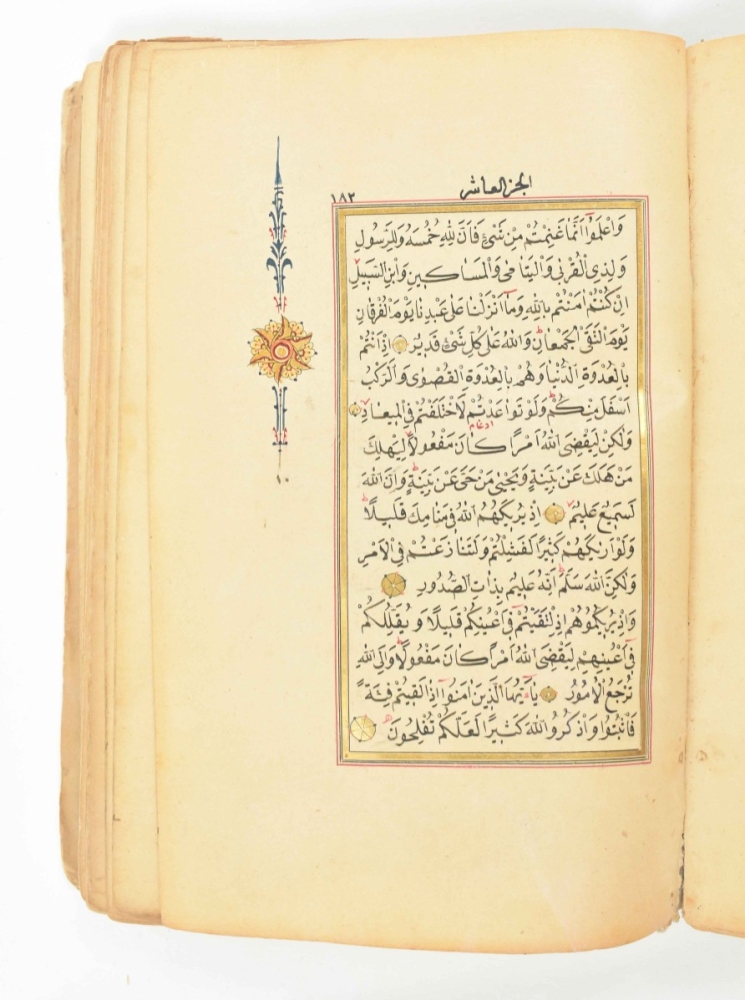 الجزء العاشر
١٨٣
وَاعْلَمُوا اَنَّمَا غَنِمْتُمْ مِنْ شَيْءٍ فَاَنَّ لِلّٰهِ خُمُسَهُ وَلِلرَّسُولِ
وَلِذِي الْقُرْبٰى وَالْيَتَامٰى وَالْمَسَاكِينِ وَابْنِ السَّبِيلِ
اِنْ كُنْتُمْ اٰمَنْتُمْ بِاللّٰهِ وَمَا اَنْزَلْنَا عَلٰى عَبْدِنَا يَوْمَ الْفُرْقَانِ
يَوْمَ الْتَقَى الْجَمْعَانِ وَاللّٰهُ عَلٰى كُلِّ شَيْءٍ قَدِيرٌ اِذْ اَنْتُمْ
بِالْعُدْوَةِ الدُّنْيَا وَهُمْ بِالْعُدْوَةِ الْقُصْوٰى وَالرَّكْبُ
اَسْفَلَ مِنْكُمْ وَلَوْ تَوَاعَدْتُمْ لَاخْتَلَفْتُمْ فِي الْمِيعَادِ
ادغام
وَلٰكِنْ لِيَقْضِيَ اللّٰهُ اَمْرًا كَانَ مَفْعُولًا لِيَهْلِكَ
مَنْ هَلَكَ عَنْ بَيِّنَةٍ وَيَحْيٰى مَنْ حَيَّ عَنْ بَيِّنَةٍ وَاِنَّ اللّٰهَ
لَسَمِيعٌ عَلِيمٌ اِذْ يُرِيكَهُمُ اللّٰهُ فِي مَنَامِكَ قَلِيلًا
وَلَوْ اَرٰيكَهُمْ كَثِيرًا لَفَشِلْتُمْ وَلَتَنَازَعْتُمْ فِي الْاَمْرِ
وَلٰكِنَّ اللّٰهَ سَلَّمَ اِنَّهُ عَلِيمٌ بِذَاتِ الصُّدُورِ
وَاِذْ يُرِيكُمُوهُمْ اِذِ الْتَقَيْتُمْ فِي اَعْيُنِكُمْ قَلِيلًا وَيُقَلِّلُكُمْ
فِي اَعْيُنِهِمْ لِيَقْضِيَ اللّٰهُ اَمْرًا كَانَ مَفْعُولًا وَاِلَى اللّٰهِ
تُرْجَعُ الْاُمُورُ يَا اَيُّهَا الَّذِينَ اٰمَنُوا اِذَا لَقِيتُمْ فِئَةً
فَاثْبُتُوا وَاذْكُرُوا اللّٰهَ كَثِيرًا لَعَلَّكُمْ تُفْلِحُونَ
١٠